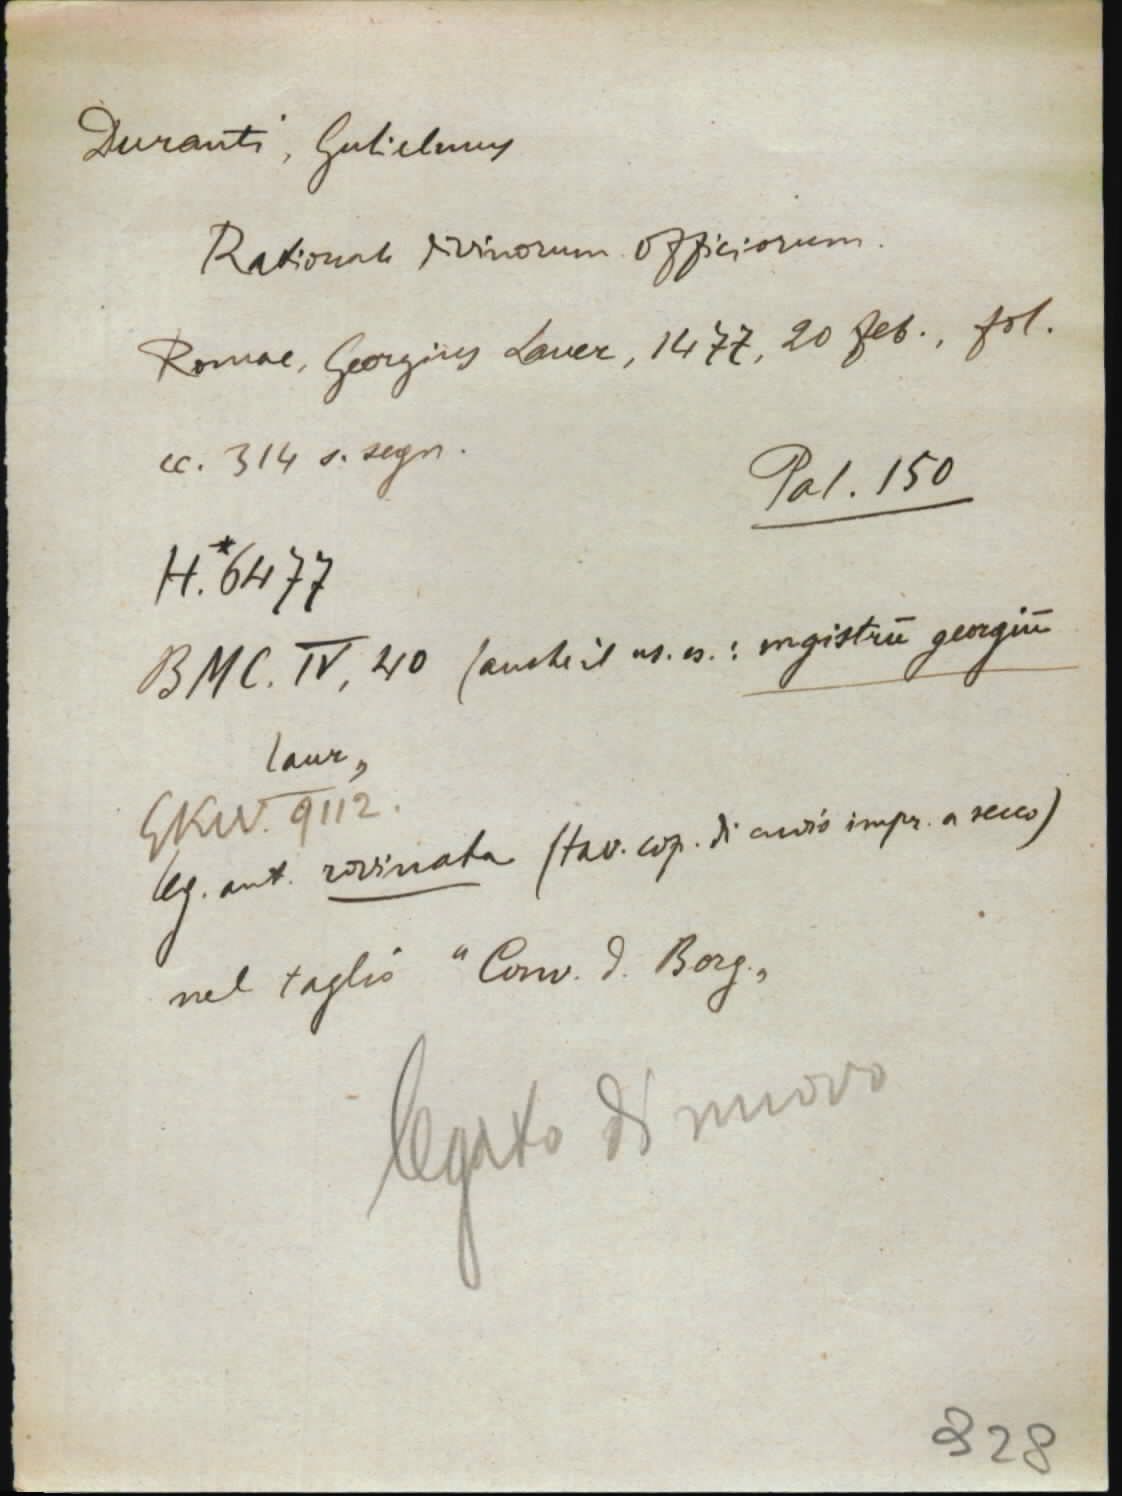 Duranti, Gulielmus
Rationale divinorum officiorum.
Romae, Georgius Lauer, 1477, 20 feb., fol.
cc. 314 s. segn.
Pal. 150
H.*6477
BMC. IV, 40 (anche il ns. es.: mgistrū georgiū
laur„
GKW. 9112.
leg. ant. rovinata (tav. cop. di cuoio impr. a secco)
nel taglio "Conv. d. Borg.„
legato di nuovo
828